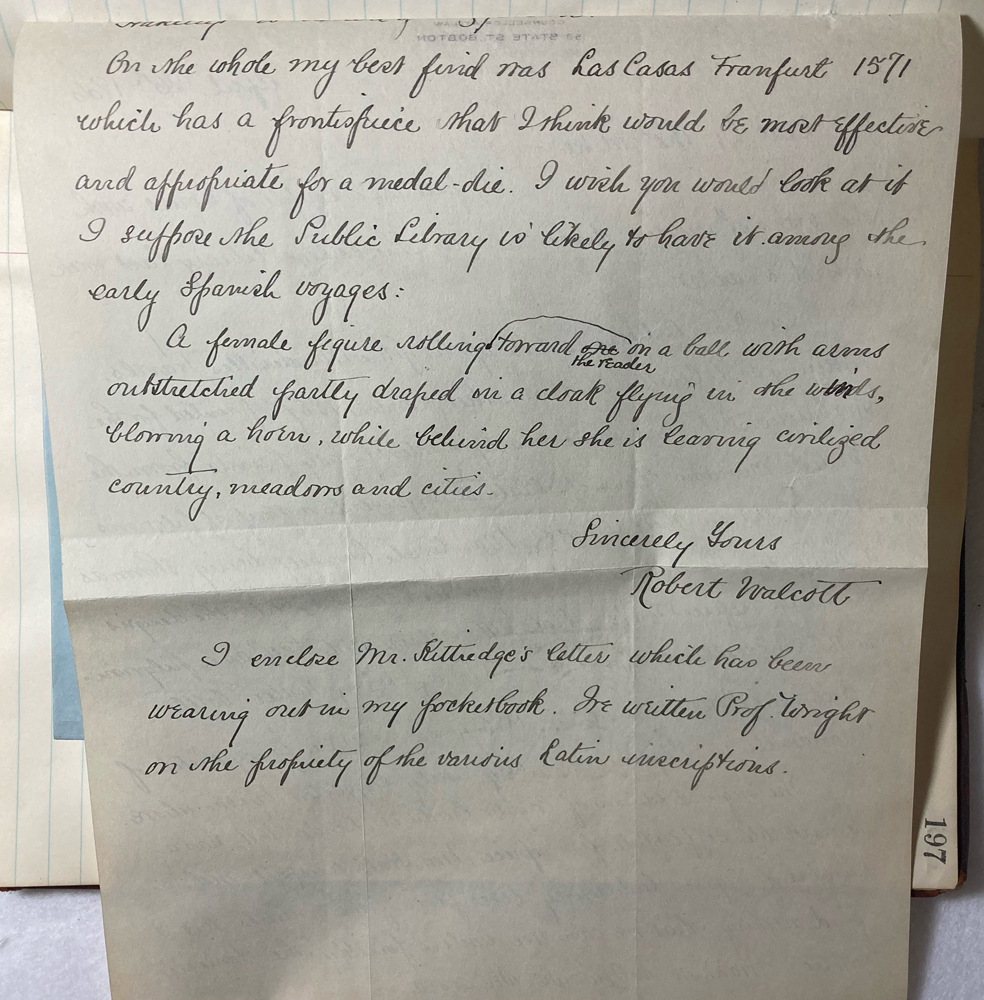 On the whole my best find was Las Casas Franfurt 1571
which has a frontispiece that I think would be most effective
and appropriate for a medal-die. I wish you would look at it
I suppose the Public Library is likely to have it among the
early Spanish voyages:
A female figure rolling toward the reader on a ball with arms
outstretched partly draped in a cloak flying in the winds,
blowing a horn, while behind her she is leaving civilized
country, meadows and cities.
Sincerely Yours
Robert Walcott
I enclose Mr. Kittredge's letter which has been
wearing out in my pocketbook. I've written Prof. Wright
on the propiety of the various Latin inscriptions.
197